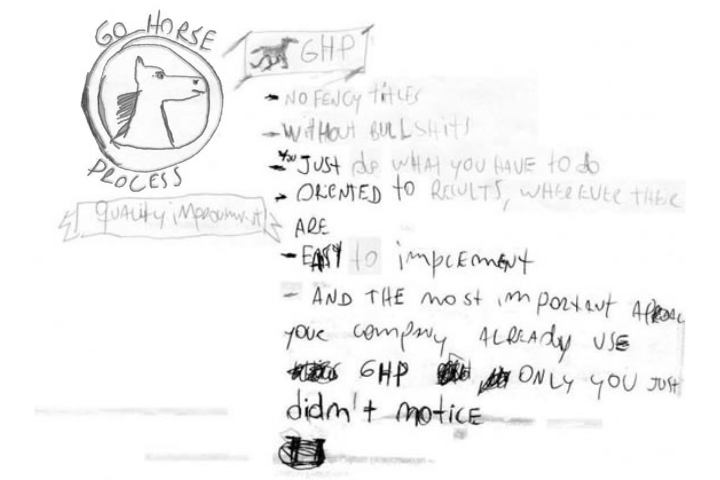 GO HORSE
PROCESS
QUALITY
GHP
- NO FENCY TITLES
- WITHOUT BULLSHITS
- YOU JUST do WHAT YOU HAVE TO do
- ORIENTED to RESULTS, WHEREVER
ARE
- EASY to implEmENT
- AND THE most important
your company ALREADY USE
GHP ONLY YOU JUST
didn't notice